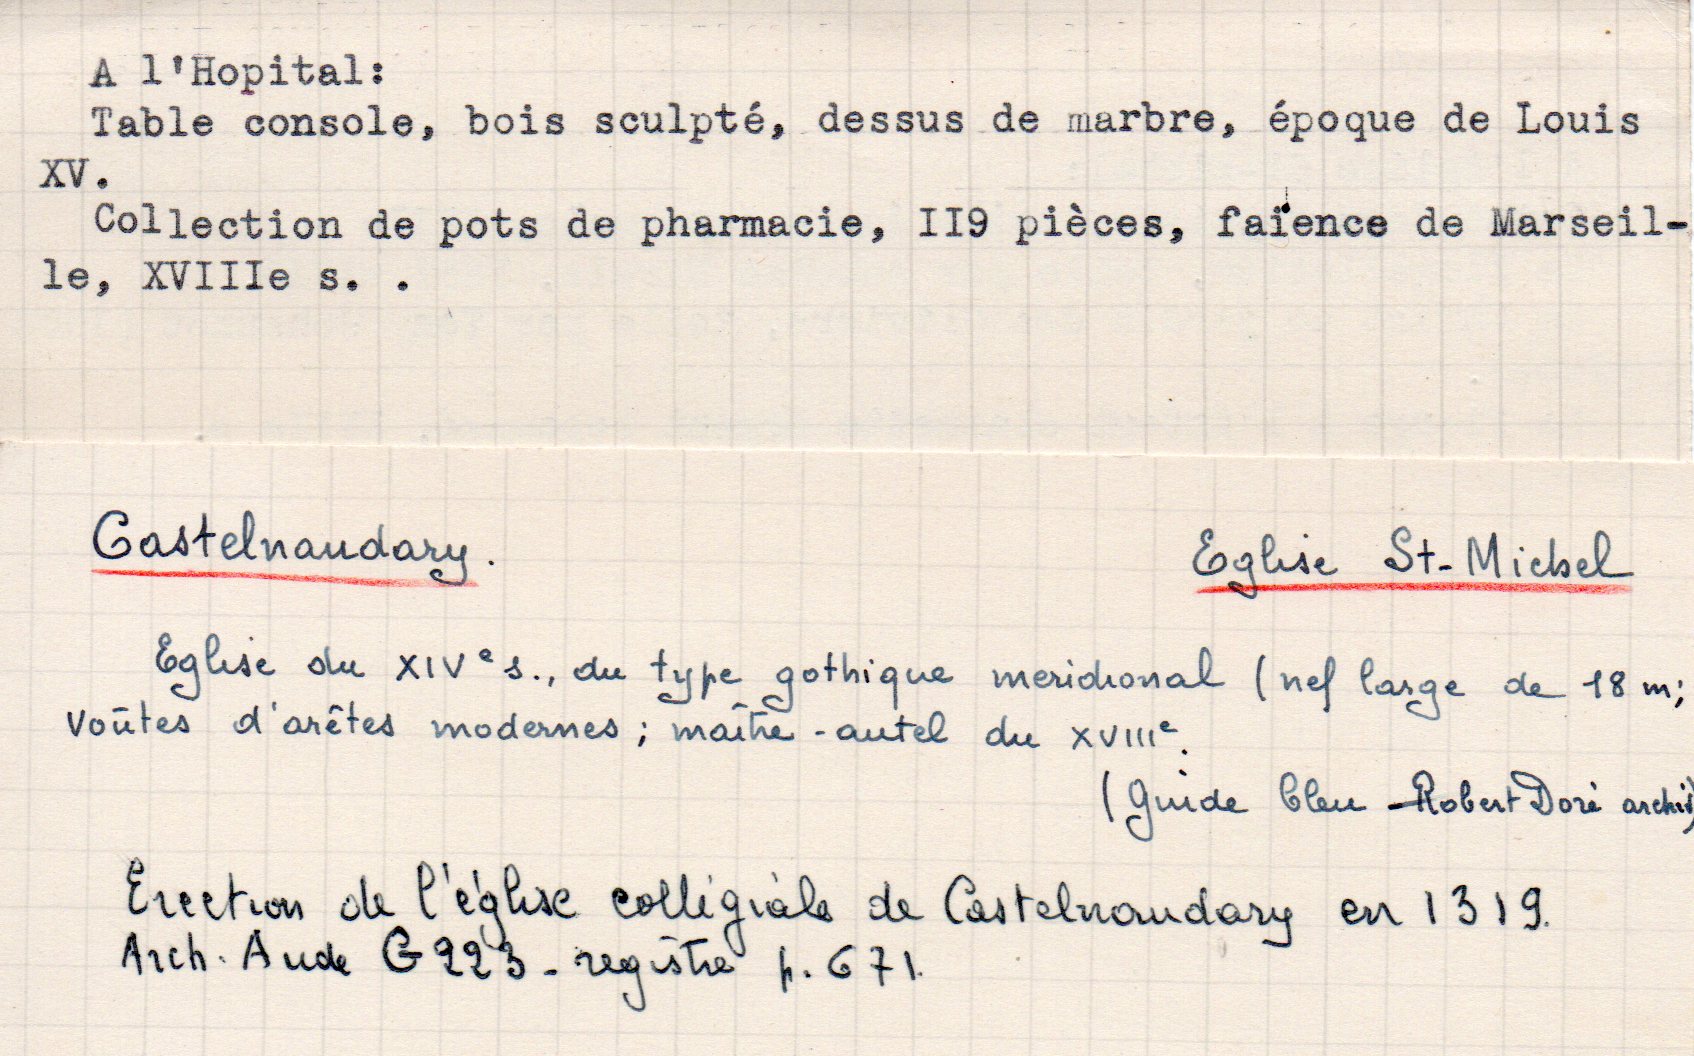 A l'Hopital:
Table console, bois sculpté, dessus de marbre, époque de Louis
XV.
Collection de pots de pharmacie, II9 pièces, faïence de Marseil-
le, XVIIIe s. .
Castelnaudary. Eglise St-Michel
Eglise du XIVe s., du type gothique meridional (nef large de 18 m;
voûtes d'arêtes modernes; maître-autel du XVIIIe.
(Guide bleu - Robert Doré archiv)
Erection de l'église collégiale de Castelnaudary en 1319.
Arch. Aude G 223 - registre p. 671.